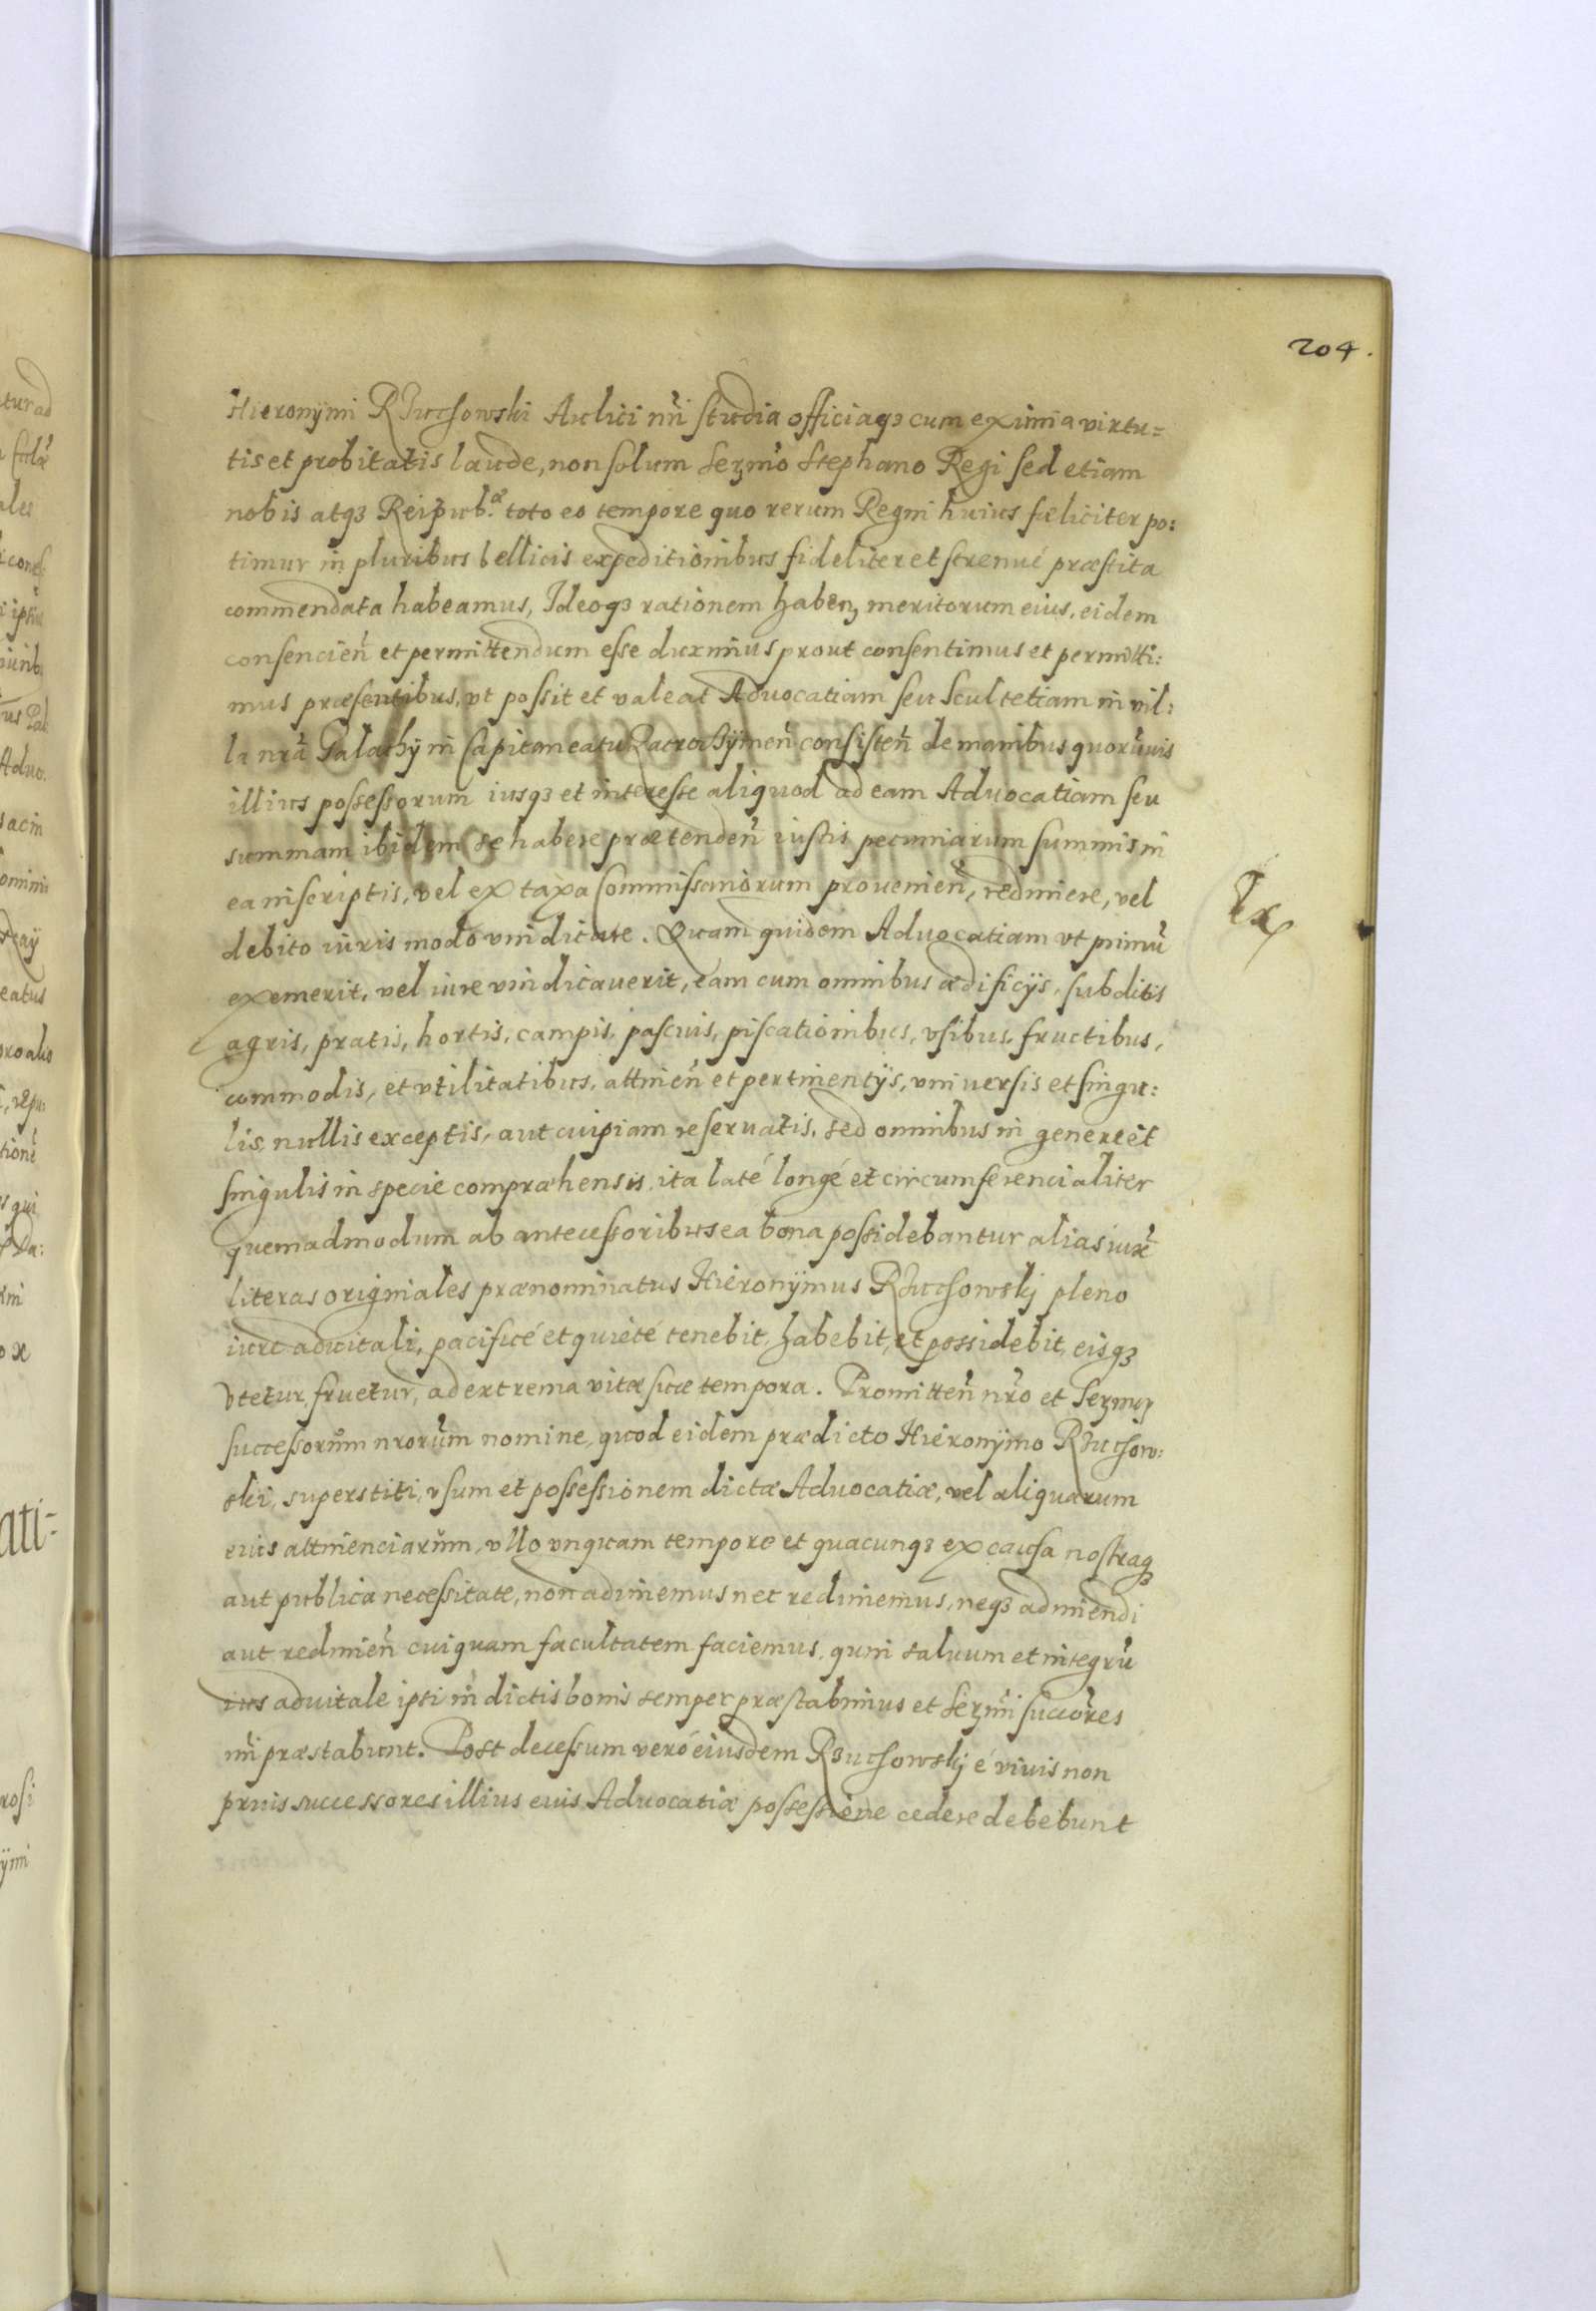 204.
Hieronÿmi Rzuchowski Aulici nrĩ studia officiaqȝ cum eximia virtu=
tis et probitatis laude, non solum Serm̃o Stephano Regi sed etiam
nobis atqȝ Reipub.æ toto eo tempore quo rerum Regni huius fæliciter po:
timur in pluribus bellicis expeditionibus fideliter et strenué præstita
commendata habeamus, Ideoqȝ rationem haben̄ meritorum eius, eidem
consencien̄ et permittendum esse duximus prout consentimus et permitti:
mus præsentibus, vt possit et valeat Advocatiam seu Scultetiam in vil:
la nrã Palachÿ in Capitaneatu consisten̄ de manibus quorũvis
illius possessorum iusqȝ et interesse aliquod ad eam Advocatiam seu
summam ibidem se habere prætenden̄ iustis pecuniarum summis in
ea inscriptis, vel ex taxa Commissariorum provenien̄, redimere, vel
debito iuris modo vindicare. Quam quidem Aduocatiam vt primũ
exemerit, vel iure vindicauerit, eam cum omnibus ædificÿs, subditis
agris, pratis, hortis, campis, pascuis, piscationibus, vsibus, fructibus,
commodis, et vtilitatibus, attinen̄ et pertinentÿs, vniuersis et singu:
lis, nullis exceptis, aut cuipiam reseruatis, sed omnibus in genere et
singulis in specie compræhensis, ita laté longé et circumferencialiter
quemadmodum ab antecessoribus ea bona possidebantur alias iux̃
literas originales prænominatus Hieronÿmus Rzuchowskj pleno
iure aduitali, pacificé et quieté tenebit, habebit, et possidebit, eisqȝ
vtetur, fruetur, ad extrema vitæ suæ tempora. Promitten̄ nrõ et Sermor̃
successorũm nrorũm nomine, quod eidem prædicto Hieronÿmo Rzuchow:
ski, superstiti, vsum et possessionem dictæ Aduocatiæ, vel aliquarum
eius attinenciarũm, vllo vnquam tempore et quacunqȝ ex causa nostraqȝ
aut publica necessitate, non adimemus nec redimemus, neqȝ adimendi
aut redimen̄ cuiquam facultatem faciemus, quin saluum et integrũ
ius aduitale ipsi in dictis bonis semper præstabimus et Serm̃i succõres
nrĩ præstabunt. Post decessum veró eiusdem Rzuchowskj é viuis non
prius successores illius eius Aduocatiæ possessione cedere debebunt